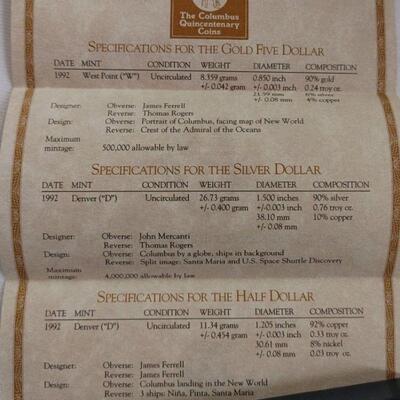 The Columbus
Quincentenary
Coins
SPECIFICATIONS FOR THE GOLD FIVE DOLLAR
DATE MINT CONDITION WEIGHT DIAMETER COMPOSITION
1992 West Point ("W") Uncirculated 8.359 grams 0.850 inch 90% gold
+/- 0.042 gram +/- 0.003 inch 0.24 troy oz.
21.59 mm 6% silver
+/- 0.08 mm 4% copper
Designer: Obverse: James Ferrell
Reverse: Thomas Rogers
Design: Obverse: Portrait of Columbus, facing map of New World
Reverse: Crest of the Admiral of the Oceans
Maximum
mintage: 500,000 allowable by law
SPECIFICATIONS FOR THE SILVER DOLLAR
DATE MINT CONDITION WEIGHT DIAMETER COMPOSITION
1992 Denver ("D") Uncirculated 26.73 grams 1.500 inches 90% silver
+/- 0.400 gram +/- 0.003 inch 0.76 troy oz.
38.10 mm 10% copper
+/- 0.08 mm
Designer: Obverse: John Mercanti
Reverse: Thomas Rogers
Design: Obverse: Columbus by a globe, ships in background
Reverse: Split image: Santa Maria and U.S. Space Shuttle Discovery
Maximum
mintage: 4,000,000 allowable by law
SPECIFICATIONS FOR THE HALF DOLLAR
DATE MINT CONDITION WEIGHT DIAMETER COMPOSITION
1992 Denver ("D") Uncirculated 11.34 grams 1.205 inches 92% copper
+/- 0.454 gram +/- 0.003 inch 0.33 troy oz.
30.61 mm 8% nickel
+/- 0.08 mm 0.03 troy oz.
Designer: Obverse: James Ferrell
Reverse: James Ferrell
Design: Obverse: Columbus landing in the New World
Reverse: 3 ships: Niña, Pinta, Santa Maria